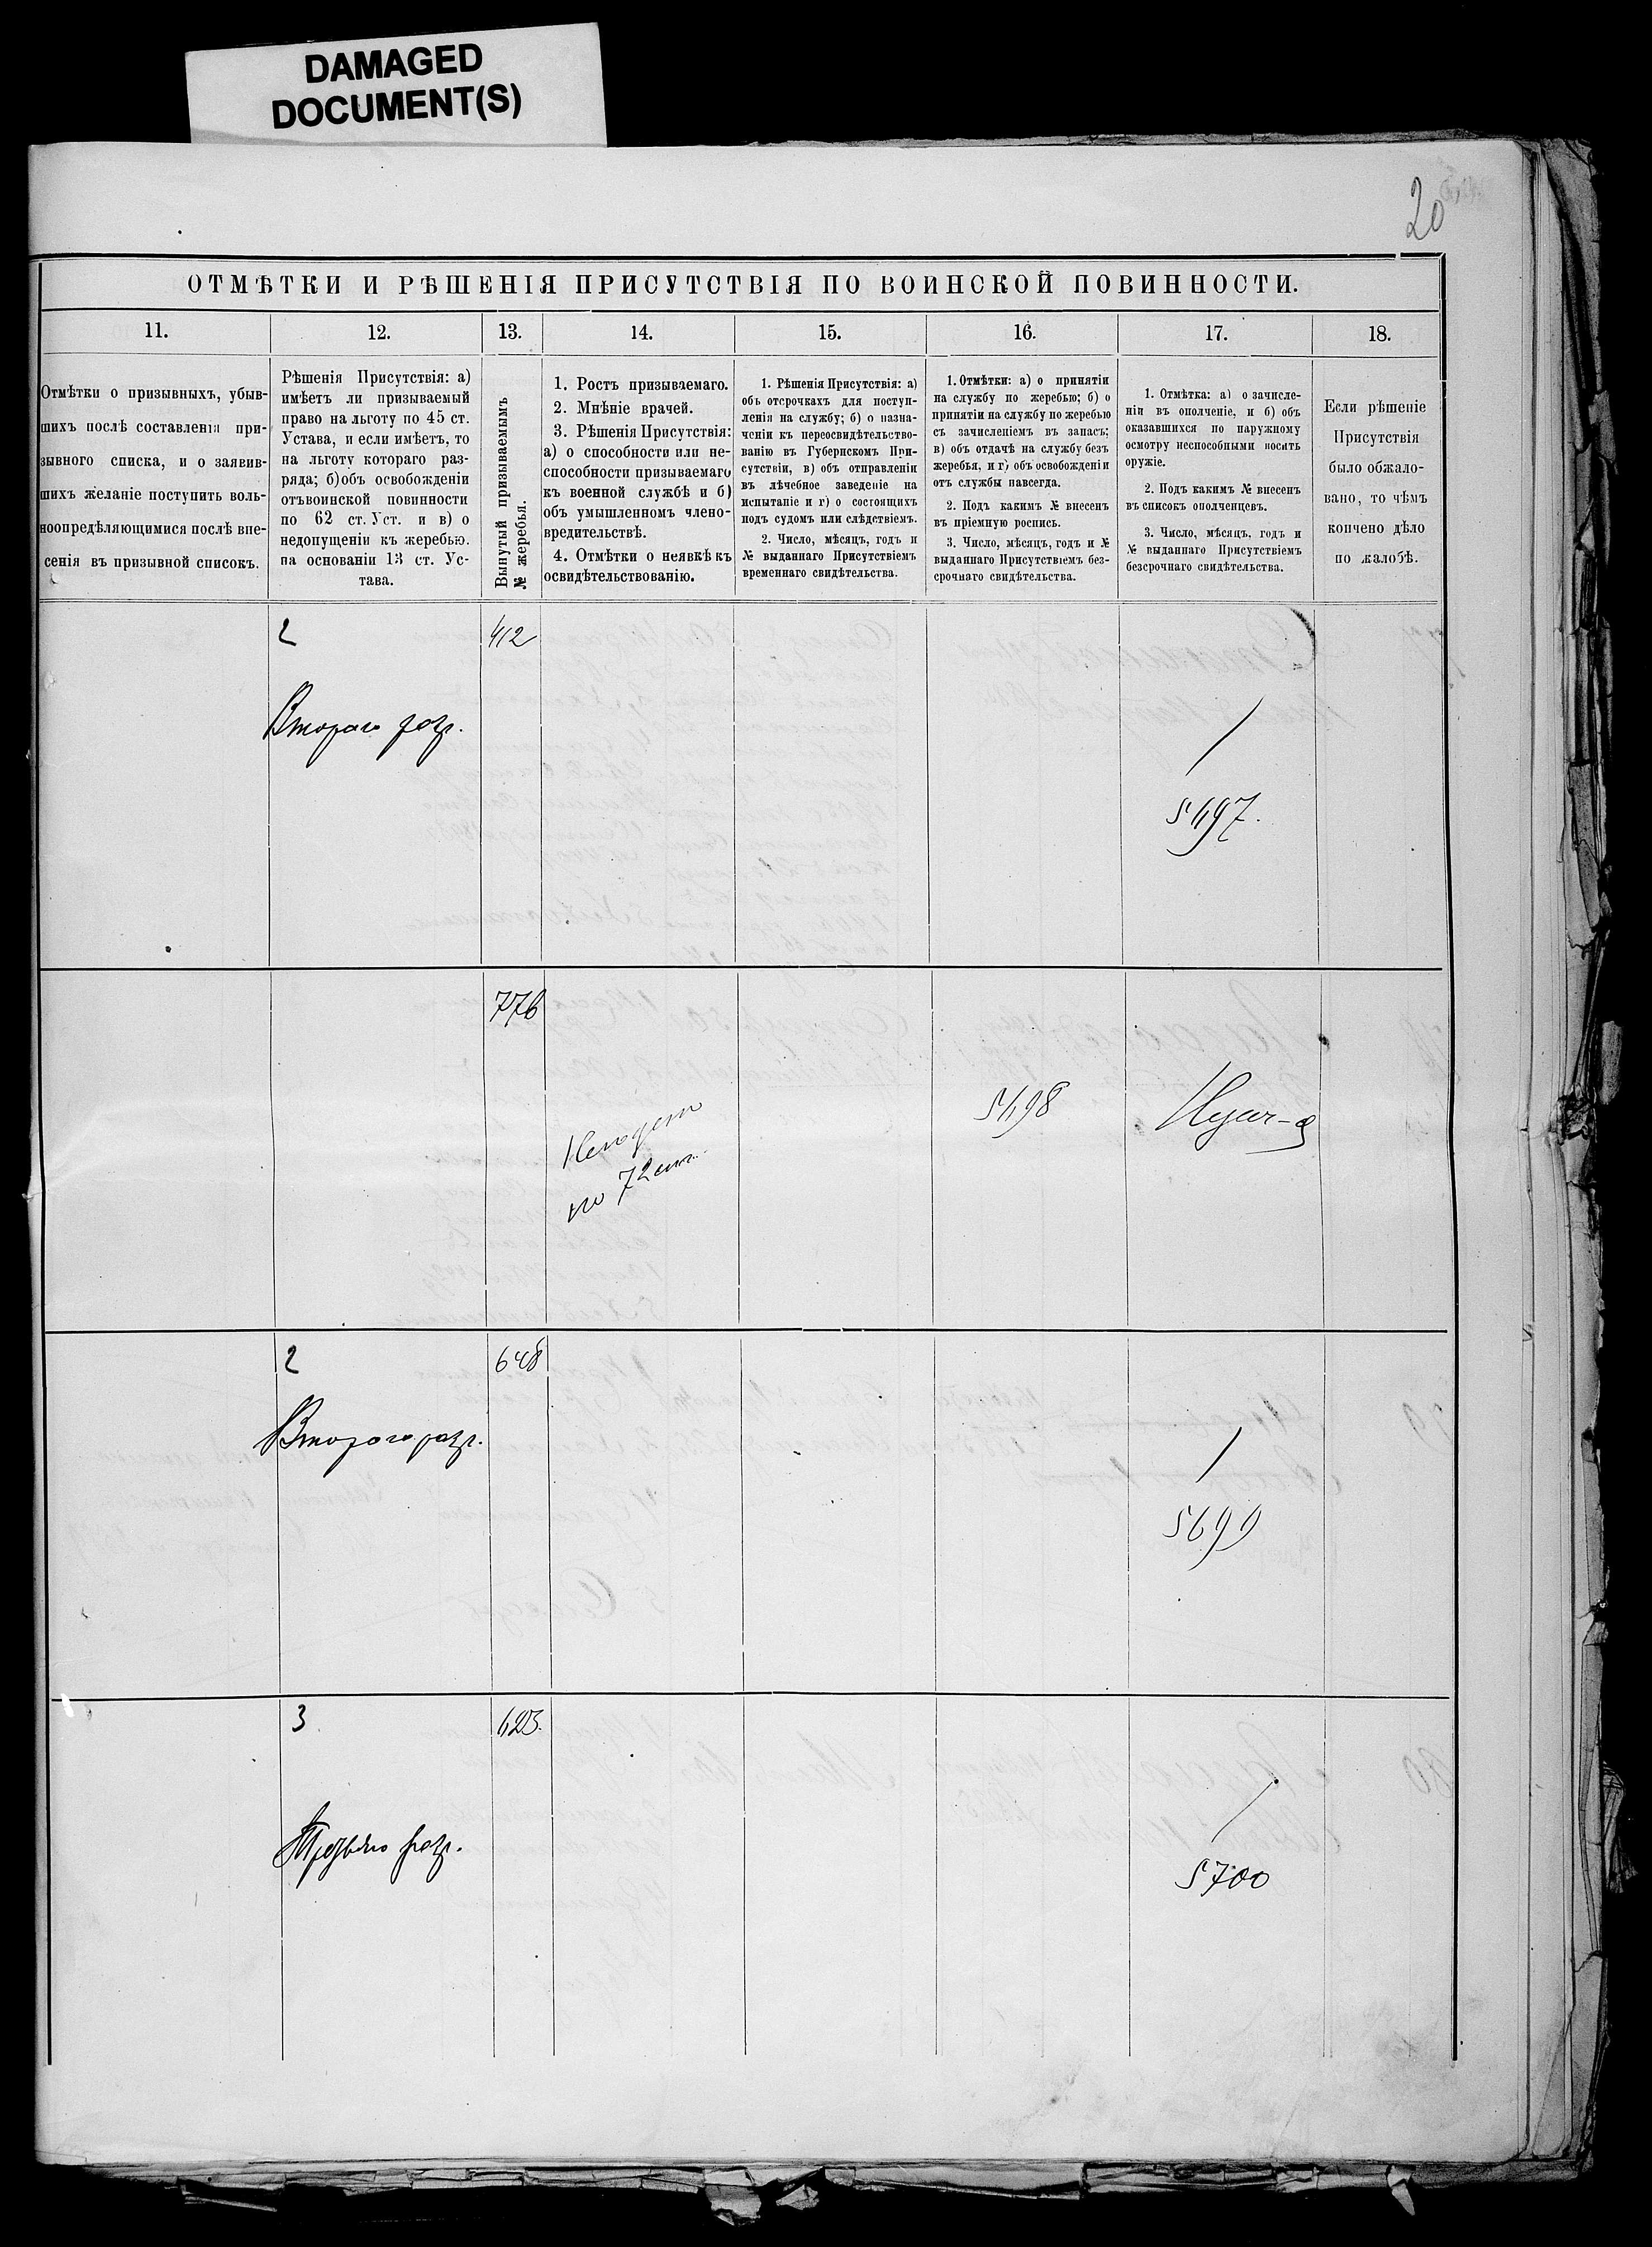 DAMAGED
DOCUMENT(S)
20
ОТМѢТКИ И РѢШЕНІЯ ПРИСУТСТВІЯ ПО ВОИНСКОЙ ПОВИННОСТИ.
11.
12.
13.
14.
15.
16.
17.
18.
Отмѣтки о призывныхъ, убыв-
шихъ послѣ составленія при-
зывного списка, и о заявив-
шихъ желаніе поступить воль-
ноопредѣляющимися послѣ вне-
сенія въ призывной списокъ.
Рѣшенія Присутствія: а)
имѣетъ ли призываемый
право на льготу по 45 ст.
Устава, и если имѣетъ, то
на льготу котораго раз-
ряда; б) объ освобожденіи
отъ воинской повинности
по 62 ст. Уст. и в) о
недопущеніи къ жеребью.
на основаніи 13 ст. Ус-
тава.
Вынутый призываемымъ
№ жеребья.
1. Ростъ призываемаго.
2. Мнѣніе врачей.
3. Рѣшенія Присутствія:
а) о способности или не-
способности призываемаго
къ военной службѣ и б)
объ умышленномъ члено-
вредительствѣ.
4. Отмѣтки о неявкѣ къ
освидѣтельствованію.
1. Рѣшенія Присутствія: а)
объ отсрочкахъ для поступ-
ленія на службу; б) о назна-
ченіи къ переосвидѣтельство-
ванію въ Губернскомъ При-
сутствіи, в) объ отправленіи
въ лѣчебное заведеніе на
испытаніе и г) о состоящихъ
подъ судомъ или слѣдствіемъ.
2. Число, мѣсяцъ, годъ и
№ выданнаго Присутствіемъ
временнаго свидѣтельства.
1. Отмѣтки: а) о принятіи
на службу по жеребью; б) о
принятіи на службу по жеребью
съ зачисленіемъ въ запасъ;
в) объ отдачѣ на службу безъ
жеребья, и г) объ освобожденіи
отъ службы навсегда.
2. Подъ какимъ № внесенъ
въ пріемную роспись.
3. Число, мѣсяцъ, годъ и №
выданнаго Присутствіемъ без-
срочнаго свидѣтельства.
1. Отмѣтка: а) о зачисле-
ніи въ ополченіе, и б) объ
оказавшихся по наружному
осмотру неспособными носить
оружіе.
2. Подъ какимъ № внесенъ
въ списокъ ополченцевъ.
3. Число, мѣсяцъ, годъ и
№ выданнаго Присутствіемъ
безсрочнаго свидѣтельства.
Если рѣшеніе
Присутствія
было обжало-
вано, то чѣмъ
кончено дѣло
по жалобѣ.
2
412
Второго разр.
5497.
776
по 72 ст.
5498
2
648
Второго разр.
5699
3
423.
Третьяго разр.
5700